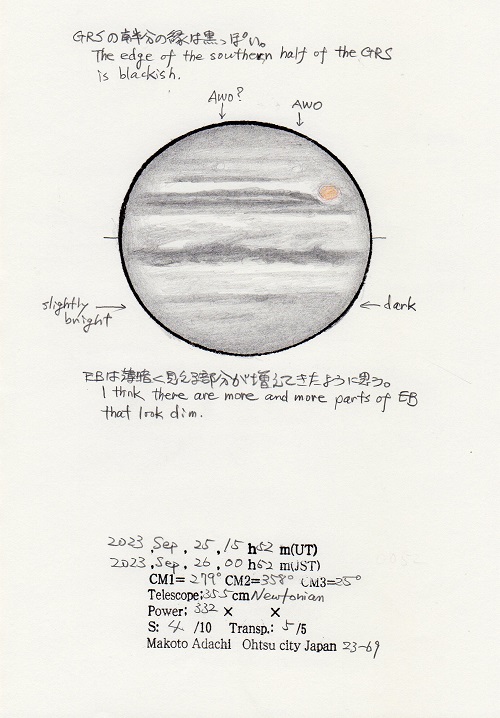 GRSの南半分の縁は黒っぽい。
The edge of the southern half of the GRS
is blackish.
AWO? AWO
slightly
bright
dark
EBは薄暗く見える部分が増えてきたように思う。
I think there are more and more parts of EB
that look dim.
2023, Sep, 25, 15 h 52 m(UT)
2023, Sep, 26, 00 h 52 m(JST)
CM1= 279° CM2= 358° CM3= 25°
Telescope; 35.5 cm Newtonian
Power; 332 × ×
S: 4 /10 Transp.: 5 /5
Makoto Adachi Ohtsu city Japan 23-69